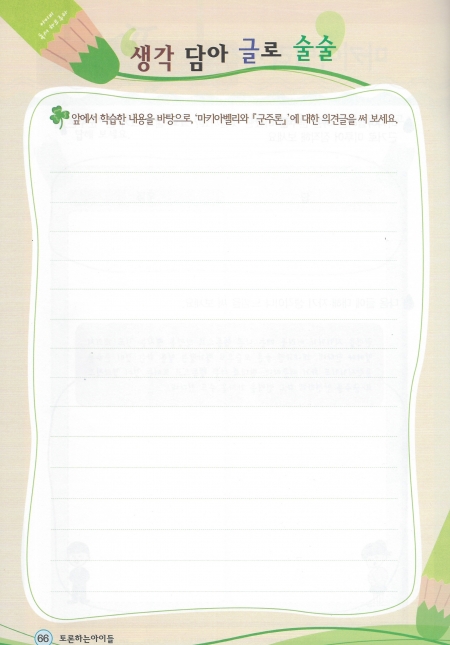 생각 담아 글로 술술
앞에서 학습한 내용을 바탕으로, '마키아벨리와 『군주론』'에 대한 의견글을 써 보세요.
66 토론하는아이들